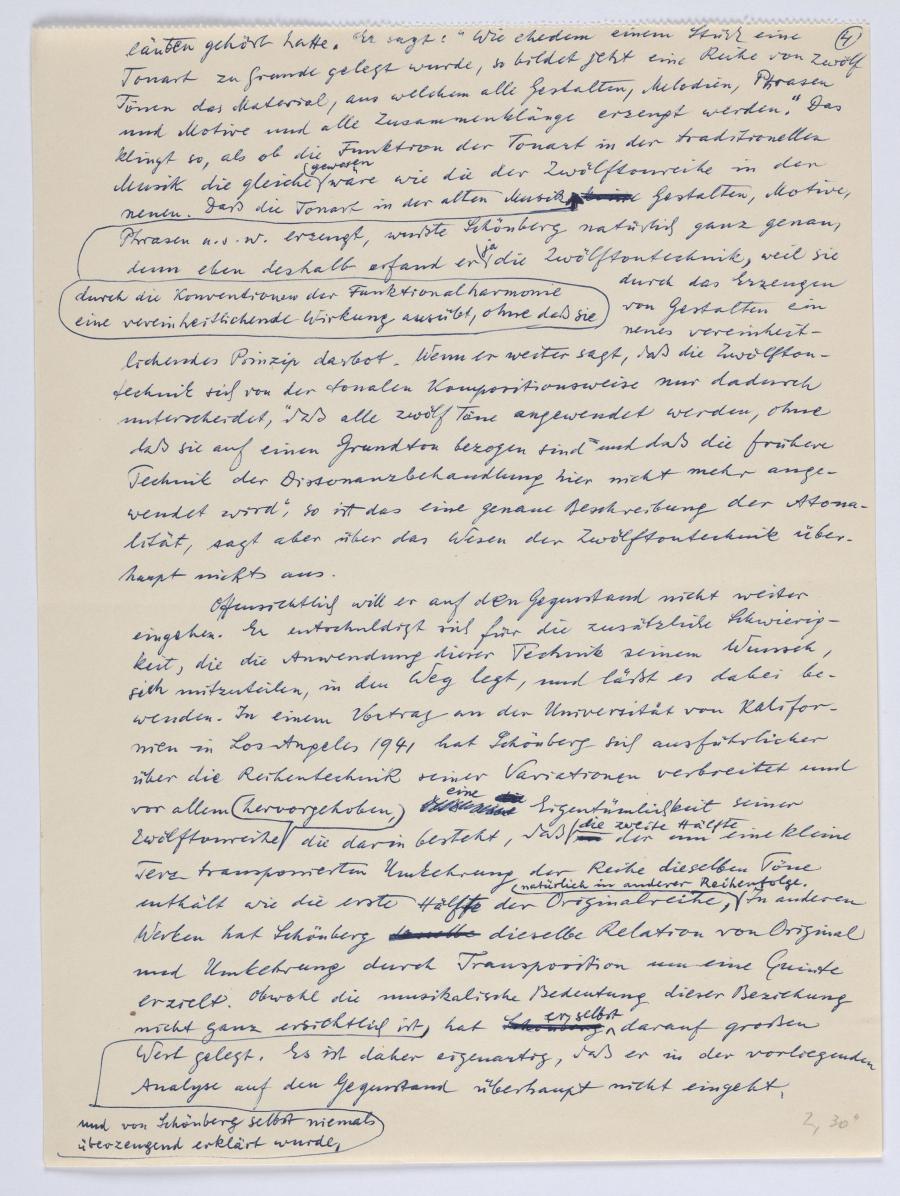 (4)
läuten gehört hatte. Er sagt: "Wie ehedem einem Stück eine
Tonart zu Grunde gelegt wurde, so bildet jetzt eine Reihe von zwölf
Tönen das Material, aus welchem alle Gestalten, Melodien, Phrasen
und Motive und alle Zusammenklänge erzeugt werden." Das
klingt so, als ob die Funktion der Tonart in der traditionellen
gewesen
Musik die gleiche wäre wie die der Zwölftonreihe in der
neuen. Daß die Tonart in der alten Musik keine Gestalten, Motive,
Phrasen u.s.w. erzeugt, wusste Schönberg natürlich ganz genau,
ja
denn eben deshalb erfand er die Zwölftontechnik, weil sie
durch das Erzeugen
durch die Konventionen der Funktionalharmonie
von Gestalten ein
eine vereinheitlichende Wirkung ausübt, ohne daß sie
neues vereinheit-
lichendes Prinzip darbot. Wenn er weiter sagt, daß die Zwölfton-
technik sich von der tonalen Kompositionsweise nur dadurch
unterscheidet, "daß alle zwölf Töne angewendet werden, ohne
daß sie auf einen Grundton bezogen sind" und daß die frühere
Technik der Dissonanzbehandlung hier nicht mehr ange-
wendet wird", so ist das eine genaue Beschreibung der Atona-
lität, sagt aber über das Wesen der Zwölftontechnik über-
haupt nichts aus.
Offensichtlich will er auf den Gegenstand nicht weiter
eingehen. Er entschuldigt sich für die zusätzliche Schwierig-
keit, die die Anwendung dieser Technik seinem Wunsch,
sich mitzuteilen, in den Weg legt, und läßt es dabei be-
wenden. In einem Vortrag an der Universität von Kalifor-
nien in Los Angeles 1941 hat Schönberg sich ausführlicher
über die Reihentechnik seiner Variationen verbreitet und
eine
vor allem hervorgehoben, Eigentümlichkeit seiner
die zweite Hälfte
Zwölftonreihe die darin besteht, daß der um eine kleine
Terz transponierten Umkehrung der Reihe dieselben Töne
natürlich in anderer Reihenfolge.
enthält wie die erste Hälfte der Originalreihe, In anderen
Werken hat Schönberg dieselbe Relation von Original
und Umkehrung durch Transposition um eine Quinte
erzielt. Obwohl die musikalische Bedeutung dieser Beziehung
er selbst
nicht ganz ersichtlich ist, hat Schönberg darauf großen
Wert gelegt. Es ist daher eigenartig, daß er in der vorliegenden
Analyse auf den Gegenstand überhaupt nicht eingeht.
und von Schönberg selbst niemals
überzeugend erklärt wurde,
2,30"